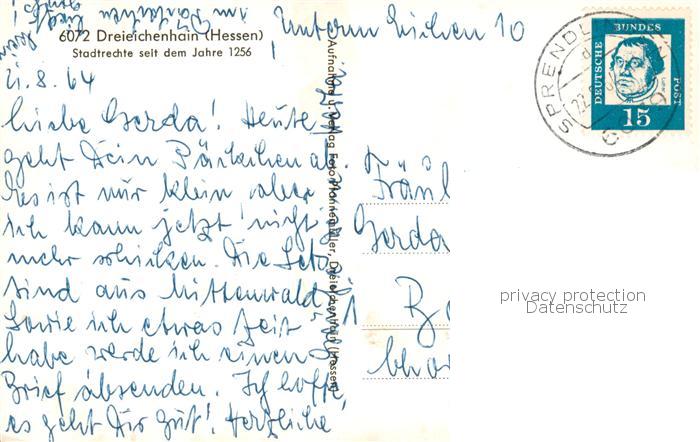 6072 Dreieichenhain (Hessen)
Stadtrechte seit dem Jahre 1256
Untern Eichen 10
21.8.64
Liebe Gerda! Heute
geht Dein Päckchen ab.
Es ist nur klein aber
ich kann jetzt nicht
mehr schicken. Die
sind aus Mittenwald
Sowie ich etwas Zeit
habe werde ich einen
Brief absenden. Ich hoffe,
es geht Dir gut! Herzliche
Aufnahme u. Verlag Foto Pfannemüller, Dreieichenhain (Hessen)
Fräul
Gerda
SPRENDLINGEN
DEUTSCHE
BUNDES
POST
15
privacy protection
Datenschutz